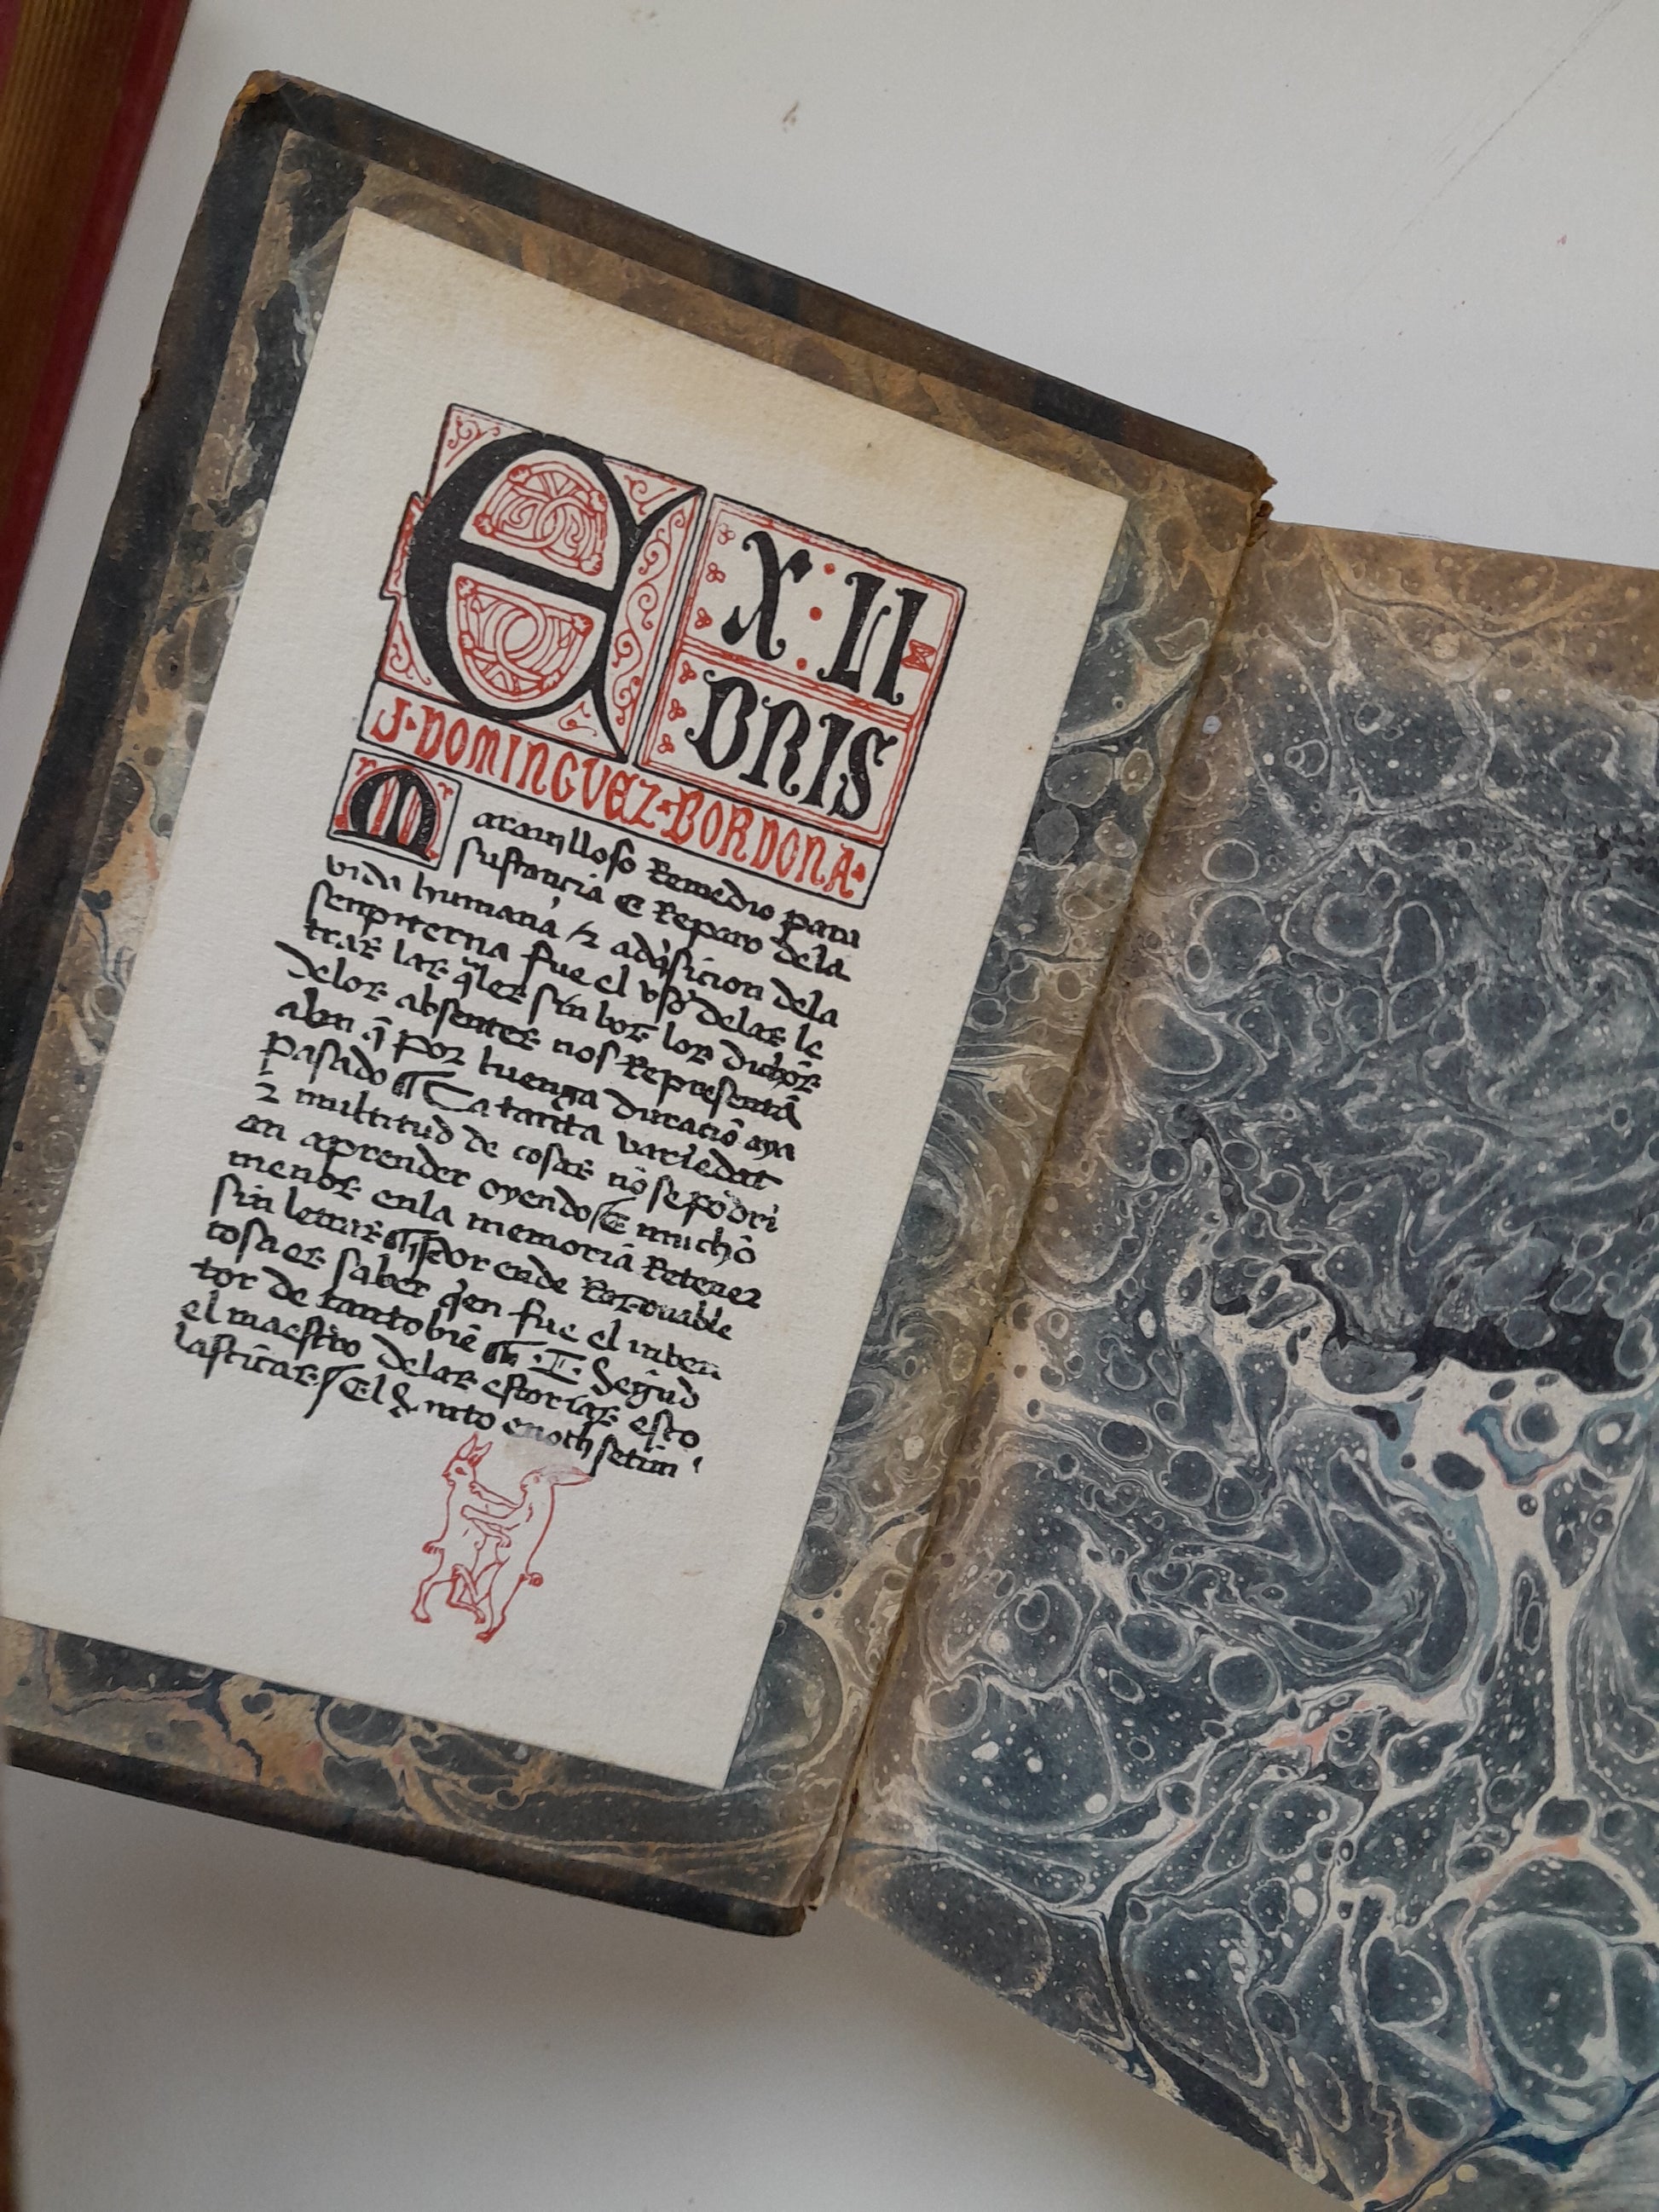 EX:LI
BRIS
J·DOMINGUEZ·BORDONA·
Marauilloso Remedio para
sustancia E Reparo dela
vida humana ⁊ adq̃sicion dela
senpiterna fue el vso delas le
tras las q̃les sin bos los dichos
delos absentes nos Representã
abn q̃ por luenga duraciõ aya
pasado ¶ Ca tanta variedat
⁊ multitud de cosas nõ se podri
en aprender oyendo E mucho
menos enla memoria Retener
sin letras ¶ Por ende Razonable
cosa es saber q̃en fue el inben
tor de tanto biẽ ¶ .I. Segud
el maestro delas estorias esco
lasticas / El nito enoch